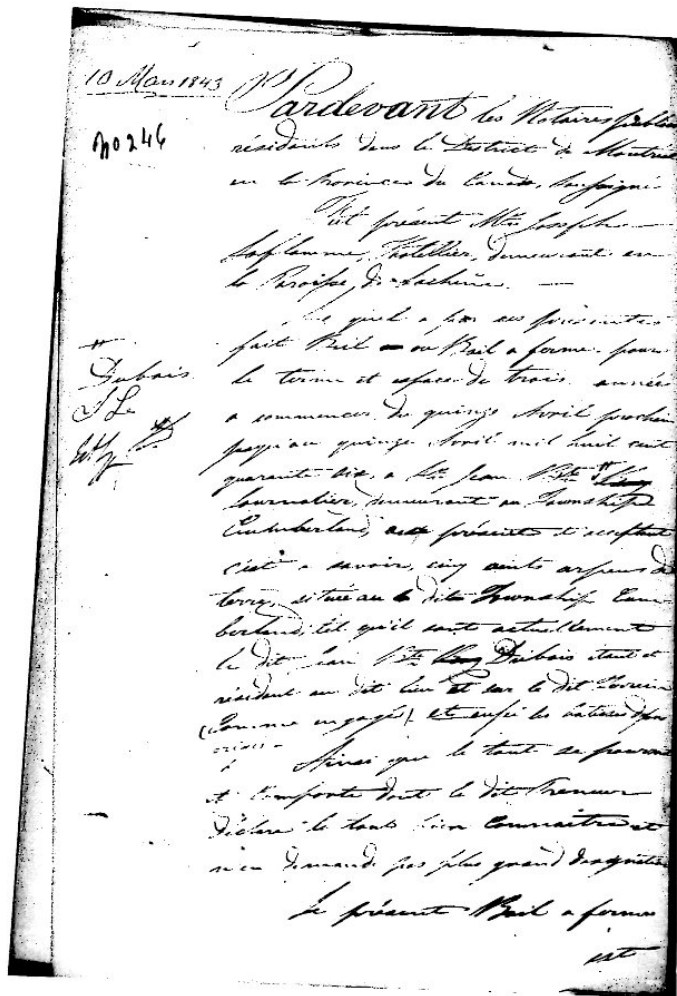 10 Mars 1843
No 246
Pardevant les Notaires publics
résidents dans le District de Montréal
en la Province du Canada, Soussignés
Fut présent Mtre Joseph
Laflamme, hotellier, demeurant en
la Paroisse de Lachine. —
Le quel a par ces présentes
fait Bail ou Bail a ferme pour
le terme et espace de trois années
a commencer du quinze Avril prochain
jusqu'au quinze Avril mil huit cent
quarante six, a Sr. Jean Bte #
Journalier, demeurant au Township
Cumberland, présent et acceptant
c'est a savoir, cinq cents arpens de
terre, situé au dit Township Cum
berland, tel qu'il sont actuellement
le dit Jean Bte Dubois étant
résident au dit lieu et sur le dit Terrein
(comme engagé)
Ainsi que le tout se poursuit
et comporte dont le dit Preneur
déclare le tout bien connaitre et
n'en demande pas plus grand designation
Le présent Bail a ferme
est
#
Dubois
J L